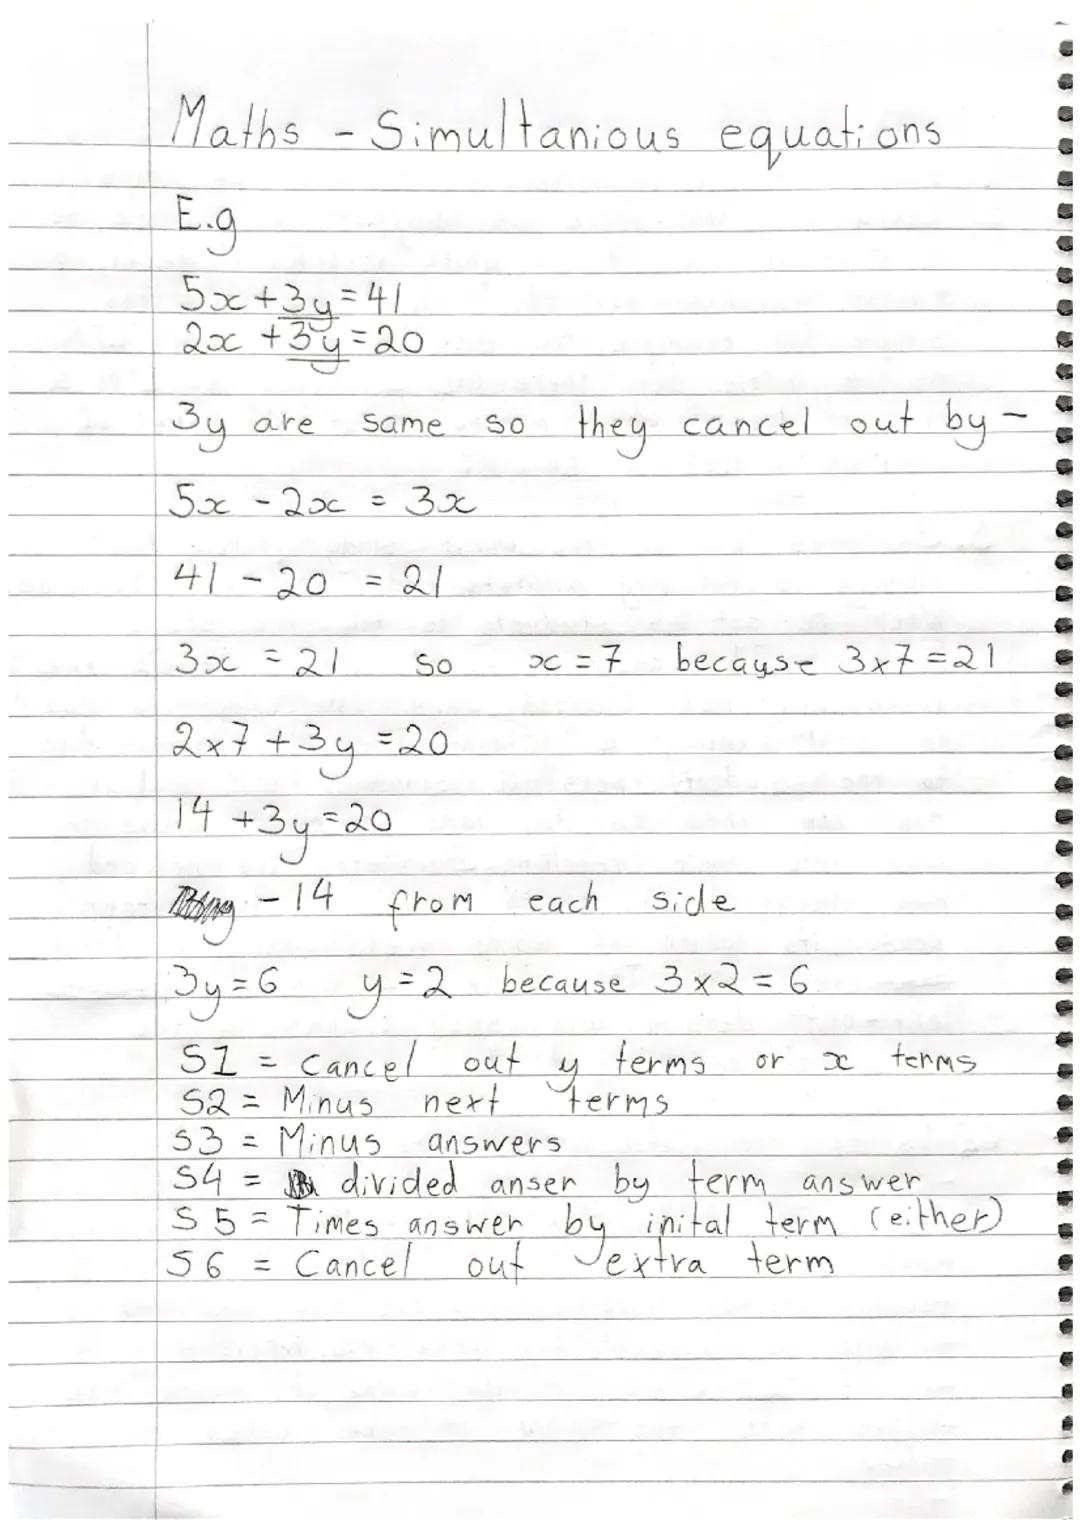 Maths - Simultanious equations
E.g
5x + 3y = 41
2x + 3y = 20
3y are same so they cancel out by -
5x - 2x = 3x
41 - 20 = 21
3x = 21 so x = 7 because 3x7 = 21
2x7 + 3y = 20
14 + 3y = 20
- 14 from each side
3y = 6 y = 2 because 3x2 = 6
S1 = Cancel out y terms or x terms
S2 = Minus next terms
S3 = Minus answers
S4 = divided anser by term answer
S5 = Times answer by inital term (either)
S6 = Cancel out extra term